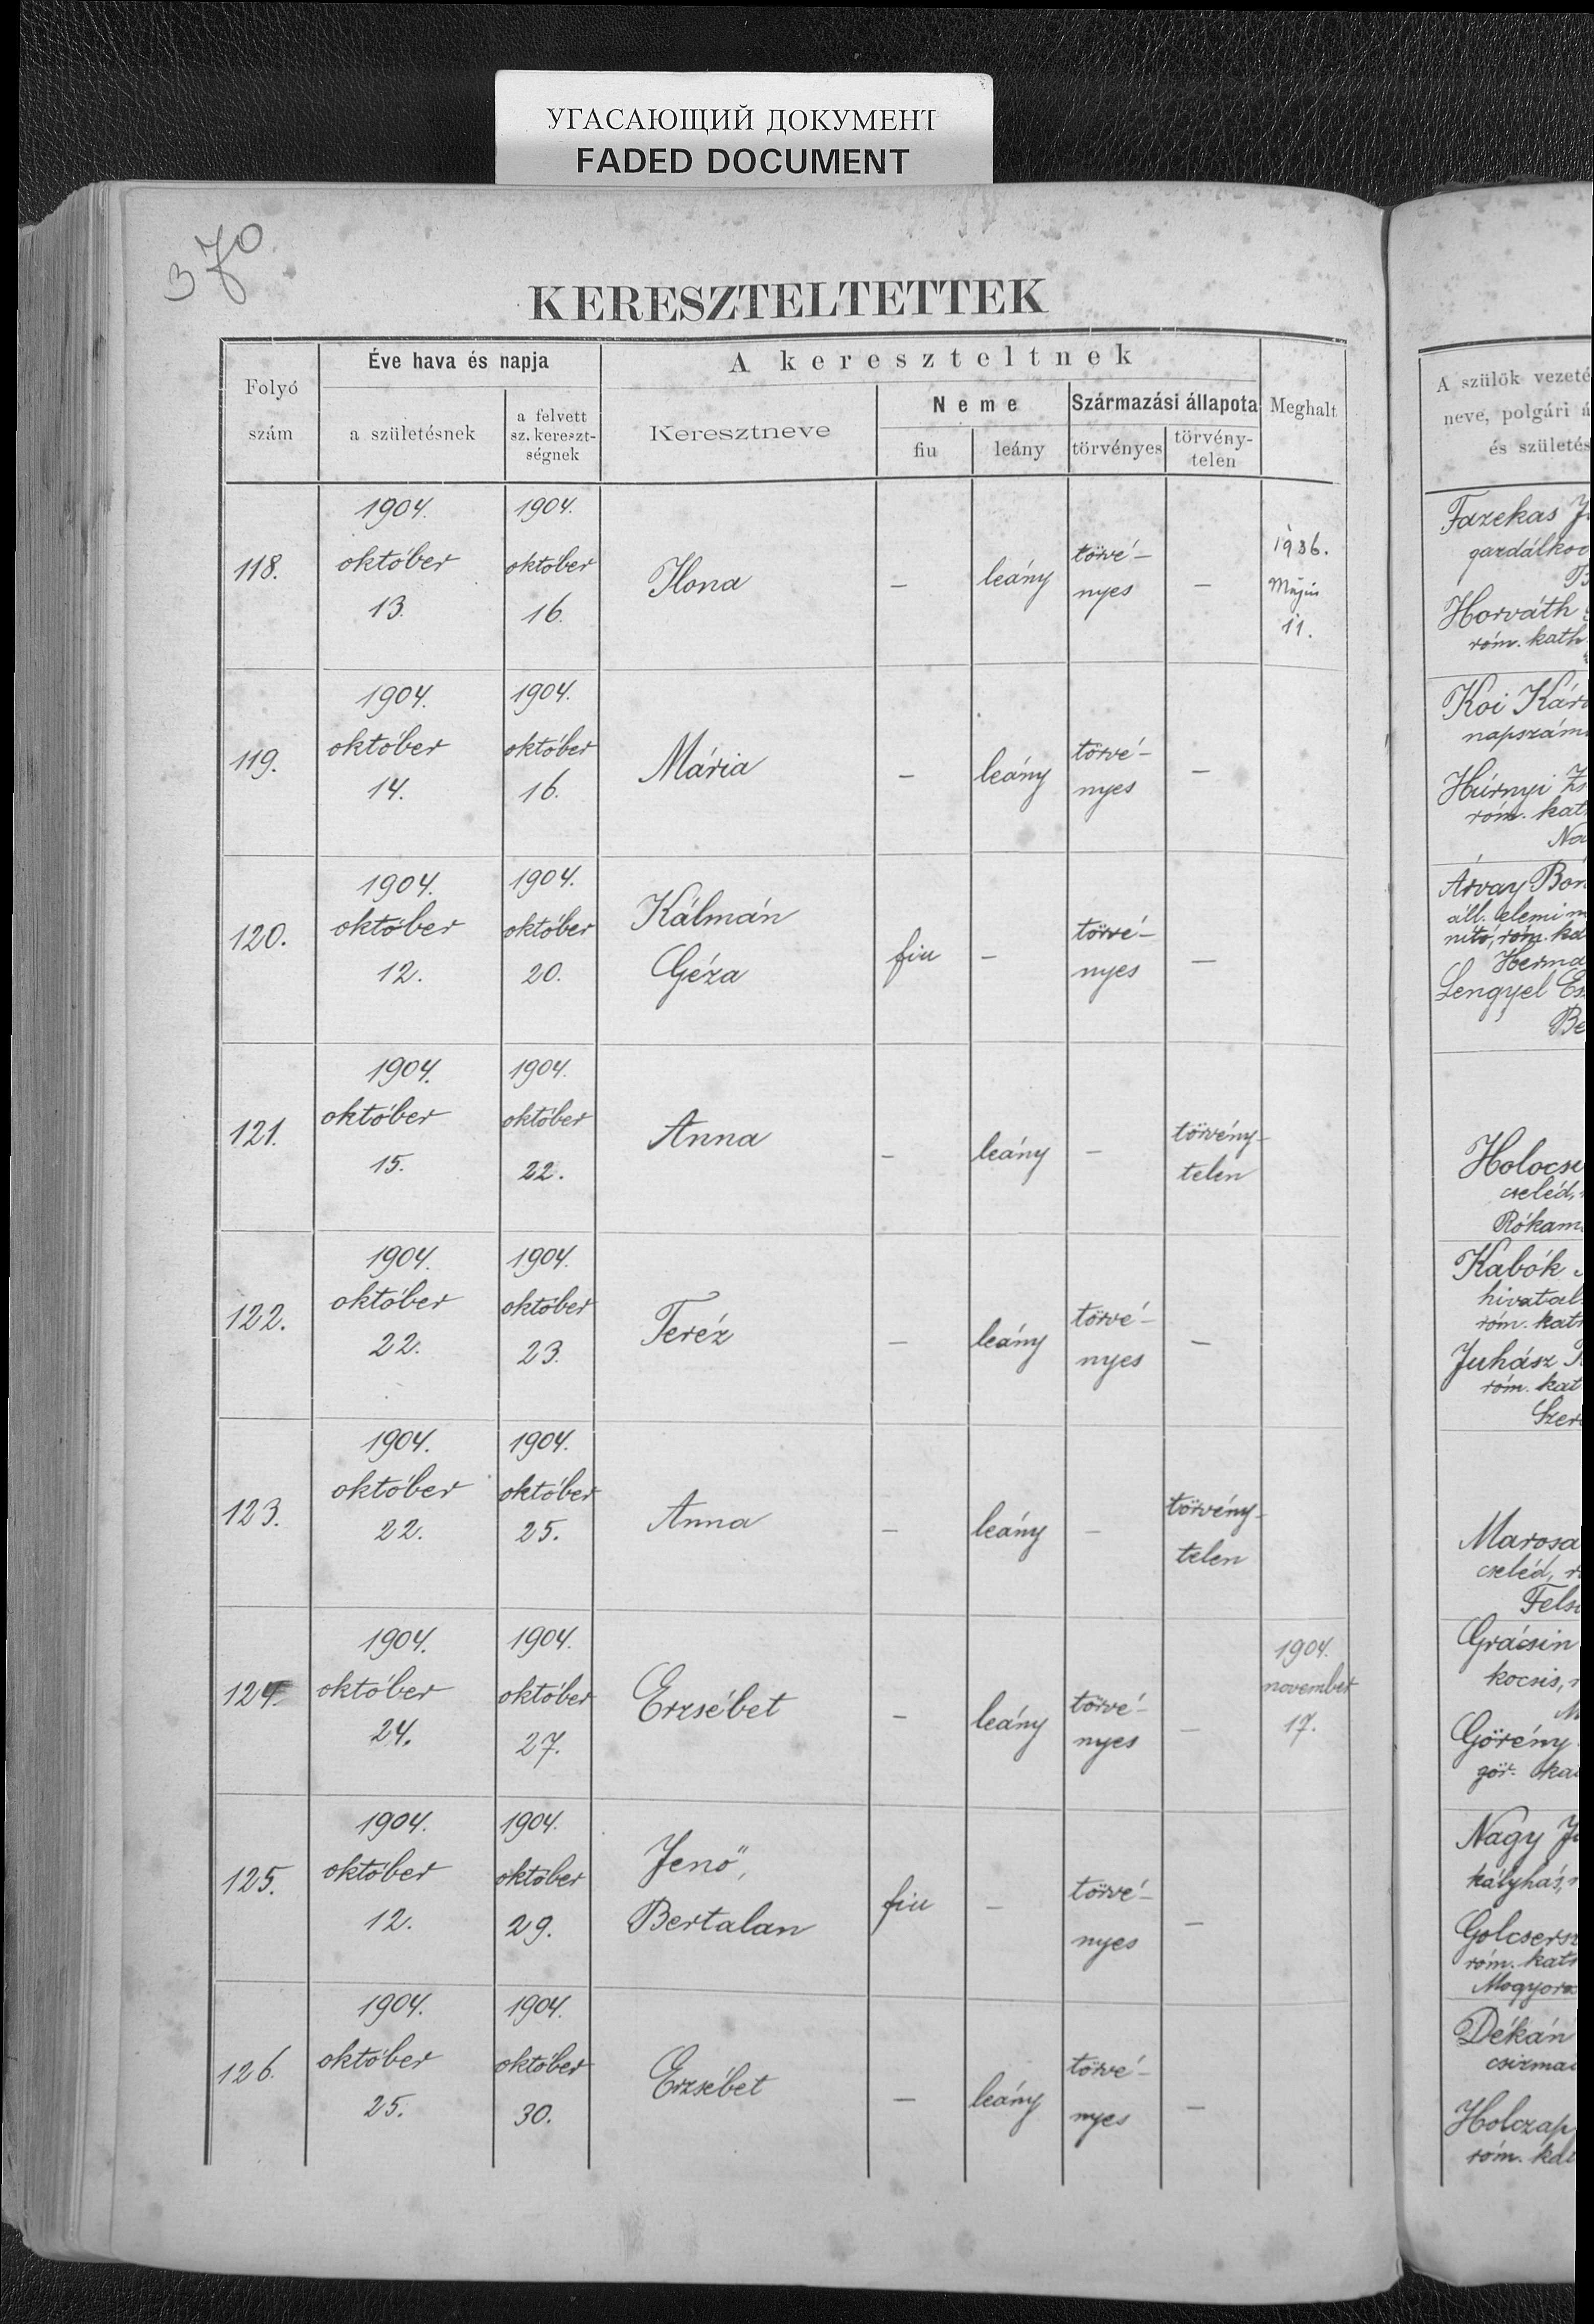 УГАСАЮЩИЙ ДОКУМЕНТ
FADED DOCUMENT
370
KERESZTELTETTEK
Folyó szám
Éve hava és napja
a születésnek
a felvett sz. kereszt-ségnek
A kereszteltnek
Keresztneve
Neme
fiu
leány
Származási állapota
törvényes
törvény-telen
Meghalt
118.
1904. október 13.
1904. október 16.
Ilona
–
leány
törvé-nyes
–
1936. Május 11.
119.
1904. október 14.
1904. október 16.
Mária
–
leány
törvé-nyes
–
120.
1904. október 12.
1904. október 20.
Kálmán
Géza
fiu
–
törvé-nyes
–
121.
1904. október 15.
1904. október 22.
Anna
–
leány
–
törvény-telen
122.
1904. október 22.
1904. október 23.
Teréz
–
leány
törvé-nyes
–
123.
1904. október 22.
1904. október 25.
Anna
–
leány
–
törvény-telen
124.
1904. október 24.
1904. október 27.
Erzsébet
–
leány
törvé-nyes
–
1904. november 17.
125.
1904. október 12.
1904. október 29.
Jenő,
Bertalan
fiu
–
törvé-nyes
–
126.
1904. október 25.
1904. október 30.
Erzsébet
–
leány
törvé-nyes
–
A szülők vezeté
neve, polgári á
és születés
Fazekas J
gazdálkod
Horváth
róm. kath
Koi Káro
napszám
Húrnyi Zs
róm. kat
Na
Árvay Bor
áll. elemi
nitó, róm. ka
Herma
Lengyel Es
Be
Holocs
cseléd,
Rókam
Kabók
hivatal
róm. kat
Juhász
róm. kat
Szer
Marosa
cseléd, r
Fels
Grácsin
kocsis,
M
Görény
gör. ka
Nagy J
kályhás,
Golcsersz
róm. kat
Mogyoro
Dékán
csizma
Holczap
róm. ka